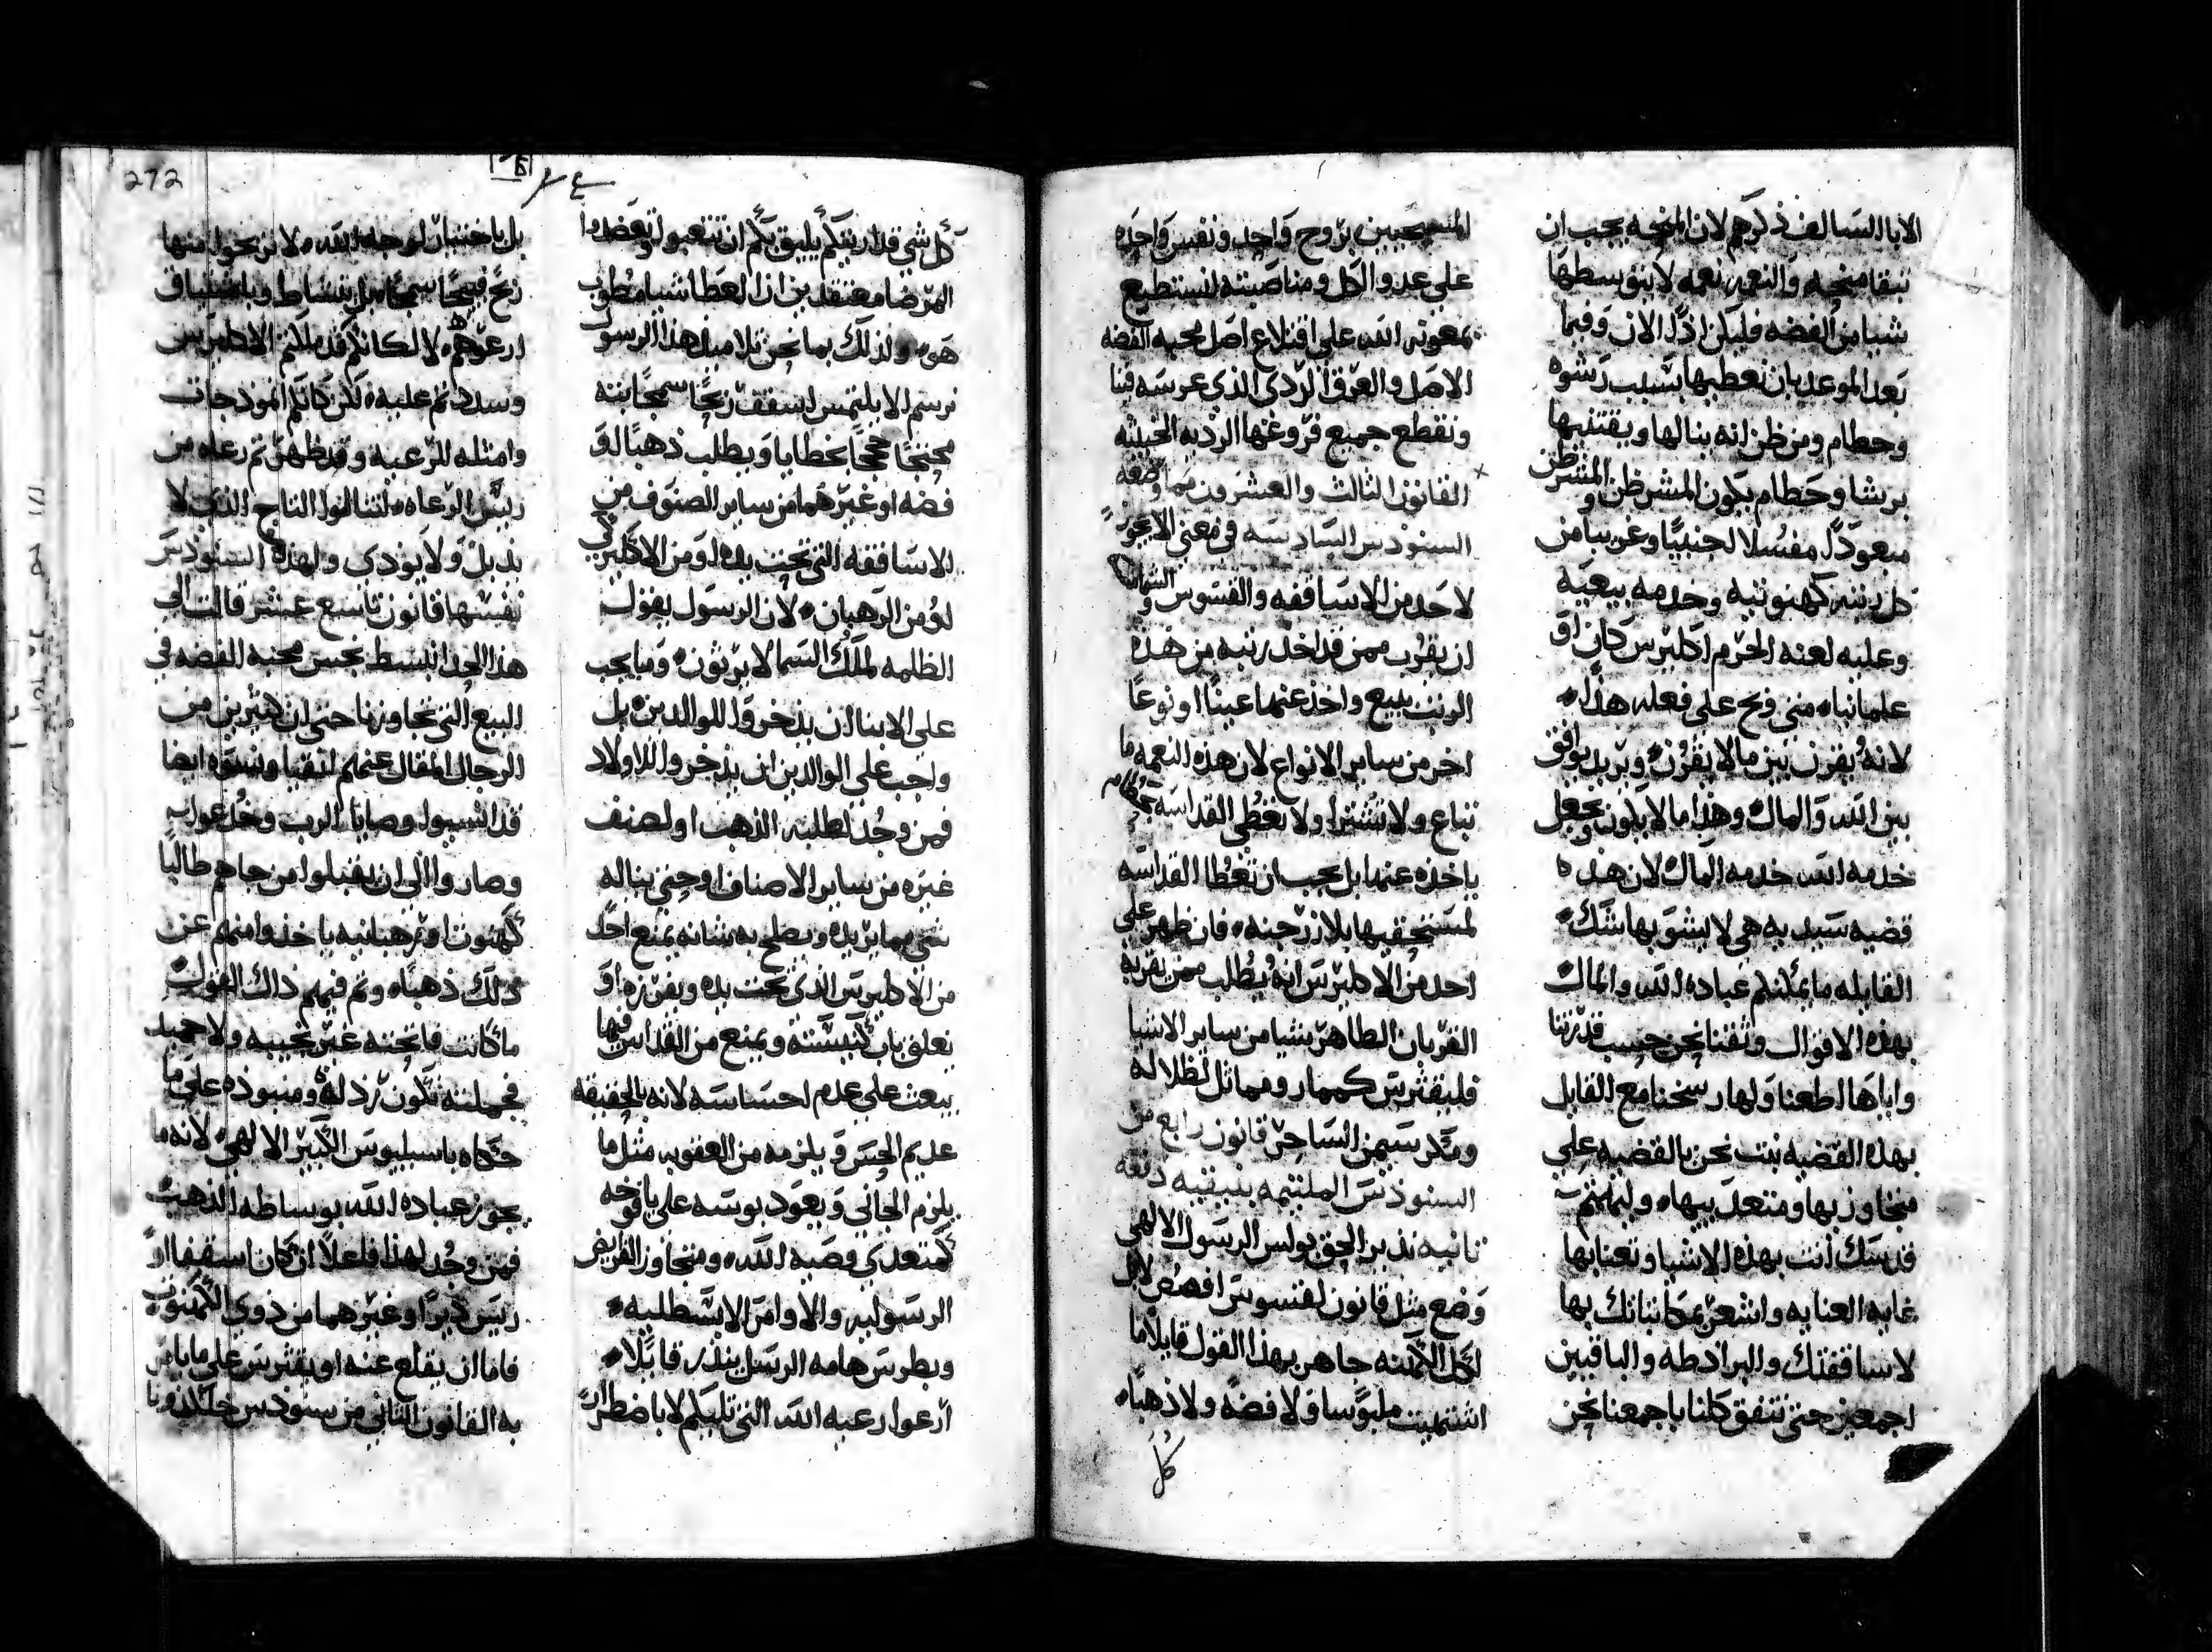 الابا السالف ذكرهم لان المنحه يجب ان
تبقا منحه والنعمه نعمه لا يتوسطها
شيا من الفضه فليكن اذًا الان وفيما
بعد الموعد بان نعطيها بسبب رشوه
وحطام ومن ظن انه ينالها ويقتنيها
برشا وحطام يكون المشرطن والمتشرطن
مبعودًا مفسُلا اجنبيًا وغريبا من
كل رتبه كهنوتيه وخدمه بيعيه
وعليه لعنه الحرم اكليرس كان او
علمانيا متى وقح على فعله هذا
لانه يقرن بين ما لا يقرن ويريد يوافق
بين الله والمال وهذا ما لا يكون ويجعل
خدمه الله خدمه المال لان هذه
قضيه سيديه هي لا يشوبها شك
القايله ما يمكنكم عباده الله والمال
بهذه الاقوال وثقنا نحن حسب قدرتنا
واياها اطعنا ولها رسخنا مع القايل
بهذه القضيه نبت نحن بالقضيه على
متجاوزيها ومتعدييها
قدسك انت بهذه الاشيا وتعنا بها
غايه العنايه واشعر بمكاتباتك بها
لاساقفتك والبرادطه والباقيين
اجمعين حتى نتفق كلنا باجمعنا نحن
المسيحيين بروح واحد ونفس واحده
على عدو الكل ومناصبته لنستطيع
بمعونه الله على اقتلاع اصل محبه الفضه
الاصل والعرق الردى الذي غرسه فينا
ونقطع جميع فروعها الرديه الخبيثه
القانون الثالث والعشرون مما وضعه
السنودس السادسه في معنى الا يجوز
لاحد من الاساقفه والقسوس والشمامسه
ان يقرب ممن قد اخد رتبه من هذه
الرتب ببيع واخذ عنها عينًا او نوعًا
اخر من ساير الانواع لان هذه النعمه ما
تباع ولا تشترا ولا نعطي القداسه بحطام
ياخذه عنها بل يجب ان تعطا القداسه
لمستحقيها بلا زرجنه فان ظهر على
احد من الاكليرس انه يُطلب ممن يقربه
القربان الطاهر شيا من ساير الاشيا
فليقثرس كممار ومماثل لضلاله
ومكر سيمن الساحر قانون رابع من
السنودس الملتيمه بنيقيه دفعه
ثانيه نذير الحق بولس الرسول الالهي
وضع مثل قانون لقسوس افسس لا بل
لكل الكهنه جاهر بهذا القول قايلا ما
اشتهيت ملبوسا ولا فضه ولا ذهبا
كل
272
كل شي قد اريتكم يليق بكم ان تتعبوا وتعضدوا
المرضا معتقدين ان العطا شيا مطوب
هو ولذلك بما نحن تلاميد هذا الرسول
نرسم الا يلتمس اسقف ربحًا سمجًا بته
محتجًا حججًا بخطايا ويطلب ذهبًا او
فضه او غيرهما من ساير الصنوف من
الاساقفه التي تحت يده او من الاكليركي
او من الرهبان لان الرسول يقول
الظلمه لملك السما لا يرثون وما يجب
على الابنا ان يذخروا للوالدين بل
واجب على الوالدين ان يذخروا للاولاد
فمن وجُد لطلبه الذهب او لصنف
غيره من ساير الاصناف او حتى يناله
شي مما يريده ويصلح به شانه يمنع احد
من الاكليرس الذي تحت يده ويفرزه او
يغلق باب كنيسته ويمنع من القداس فيها
يبعث على عدم احساسه لانه بالحقيقه
عديم الحس ويلزمه من العقوبه مثل ما
يلزم الجاني ويعود بوسه على يافوخه
كمتعدي وصيه الله ومتجاوز الفرايض
الرسوليه والاوامر الابسطليه
وبطرس هامه الرسل ينذر قايلا
ارعوا رعيه الله التي تليكم لا باضطرار
بل باختيار لوجه الله لا تربحوا منها
ربح قبيحًا سمجًا بل بنشاط وباشتياق
ارعوهم لا لكانكم قد ملكتم الاكليرس
وسددتم عليه لكن كانكم انموذجات
وامثله للرعيه وقد ظهرتم رعاه من
ريس الرعاه لتنالوا التاج الذي لا
يذبل ولا يودى ولهذه السنودس
نفسها قانون تاسع عشر قالت الى
هذا الحد انبسط نجس محبه الفضه في
البيع التي تجاوزها حتى ان كثيرين من
الرجال المقال عنهم اتقيا ونسوه ايضا
قد انسيوا وصايا الرب وخُدعوا به
وصاروا الى ان يقبلوا من جاهم طالبًا
كهنوت او ترهبانيه ياخذوا منهم عن
ذلك ذهبًا وتم فيهم ذاك القول
ما كانت فاتحته غير نجيبه ولا حميده
فجملته تكون رذله ومنبوذه على ما
حكاه باسيليوس الكبير الالهي لانه ما
يجوز عباده الله بوساطه الذهب
فمن وجُد لهذا فاعلًا ان كان اسقفا او
ريس ديرًا او غيرهما من ذوي الكهنوت
فاما ان يقلع عنه او يقثرس على ما يامر
به القانون الثاني من سنودس خلكدونا